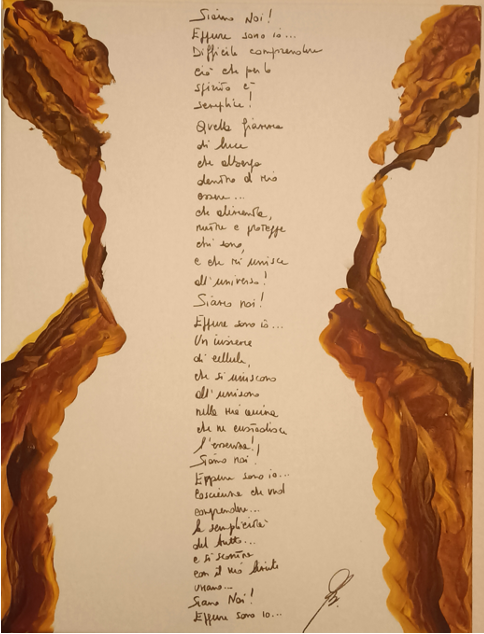 Siamo Noi!
Eppure sono io...
Difficile comprendere
ciò che per lo
spirito è
semplice!
Quella fiamma
di luce
che alberga
dentro il mio
essere...
che alimenta,
nutre e protegge
chi sono,
e che mi unisce
all'universo!
Siamo noi!
Eppure sono io...
Un insieme
di cellule,
che si uniscono
all'unisono
nella mia anima
che ne custodisce
l'essenza!
Siamo noi.
Eppure sono io...
Coscienza che vuol
comprendere...
la semplicità
del tutto...
e si scontra
con il mio limite
umano...
Siamo Noi!
Eppure sono io...